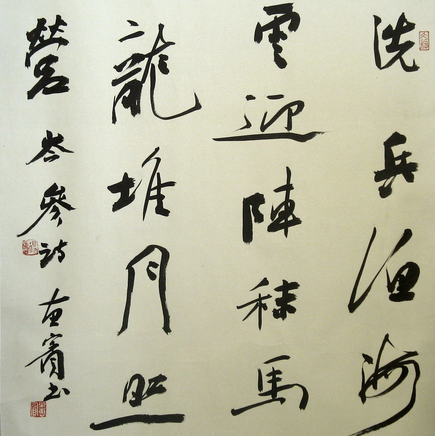 洗兵渔海
雲迎陣秣馬
龍堆月照
營岑參诗賓书